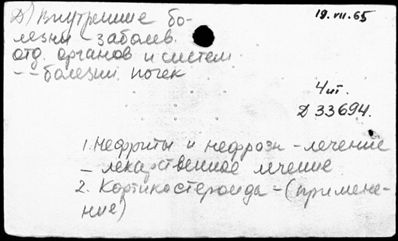 Д) Внутренние бо-
лезни заболев.
отд. органов и систем
-- болезни почек
19.VII.65
Чит.
Д 33694.
1. Нефриты и нефрозы - лечение
- лекарственное лечение
2. Кортикостероида - (примене-
ние)